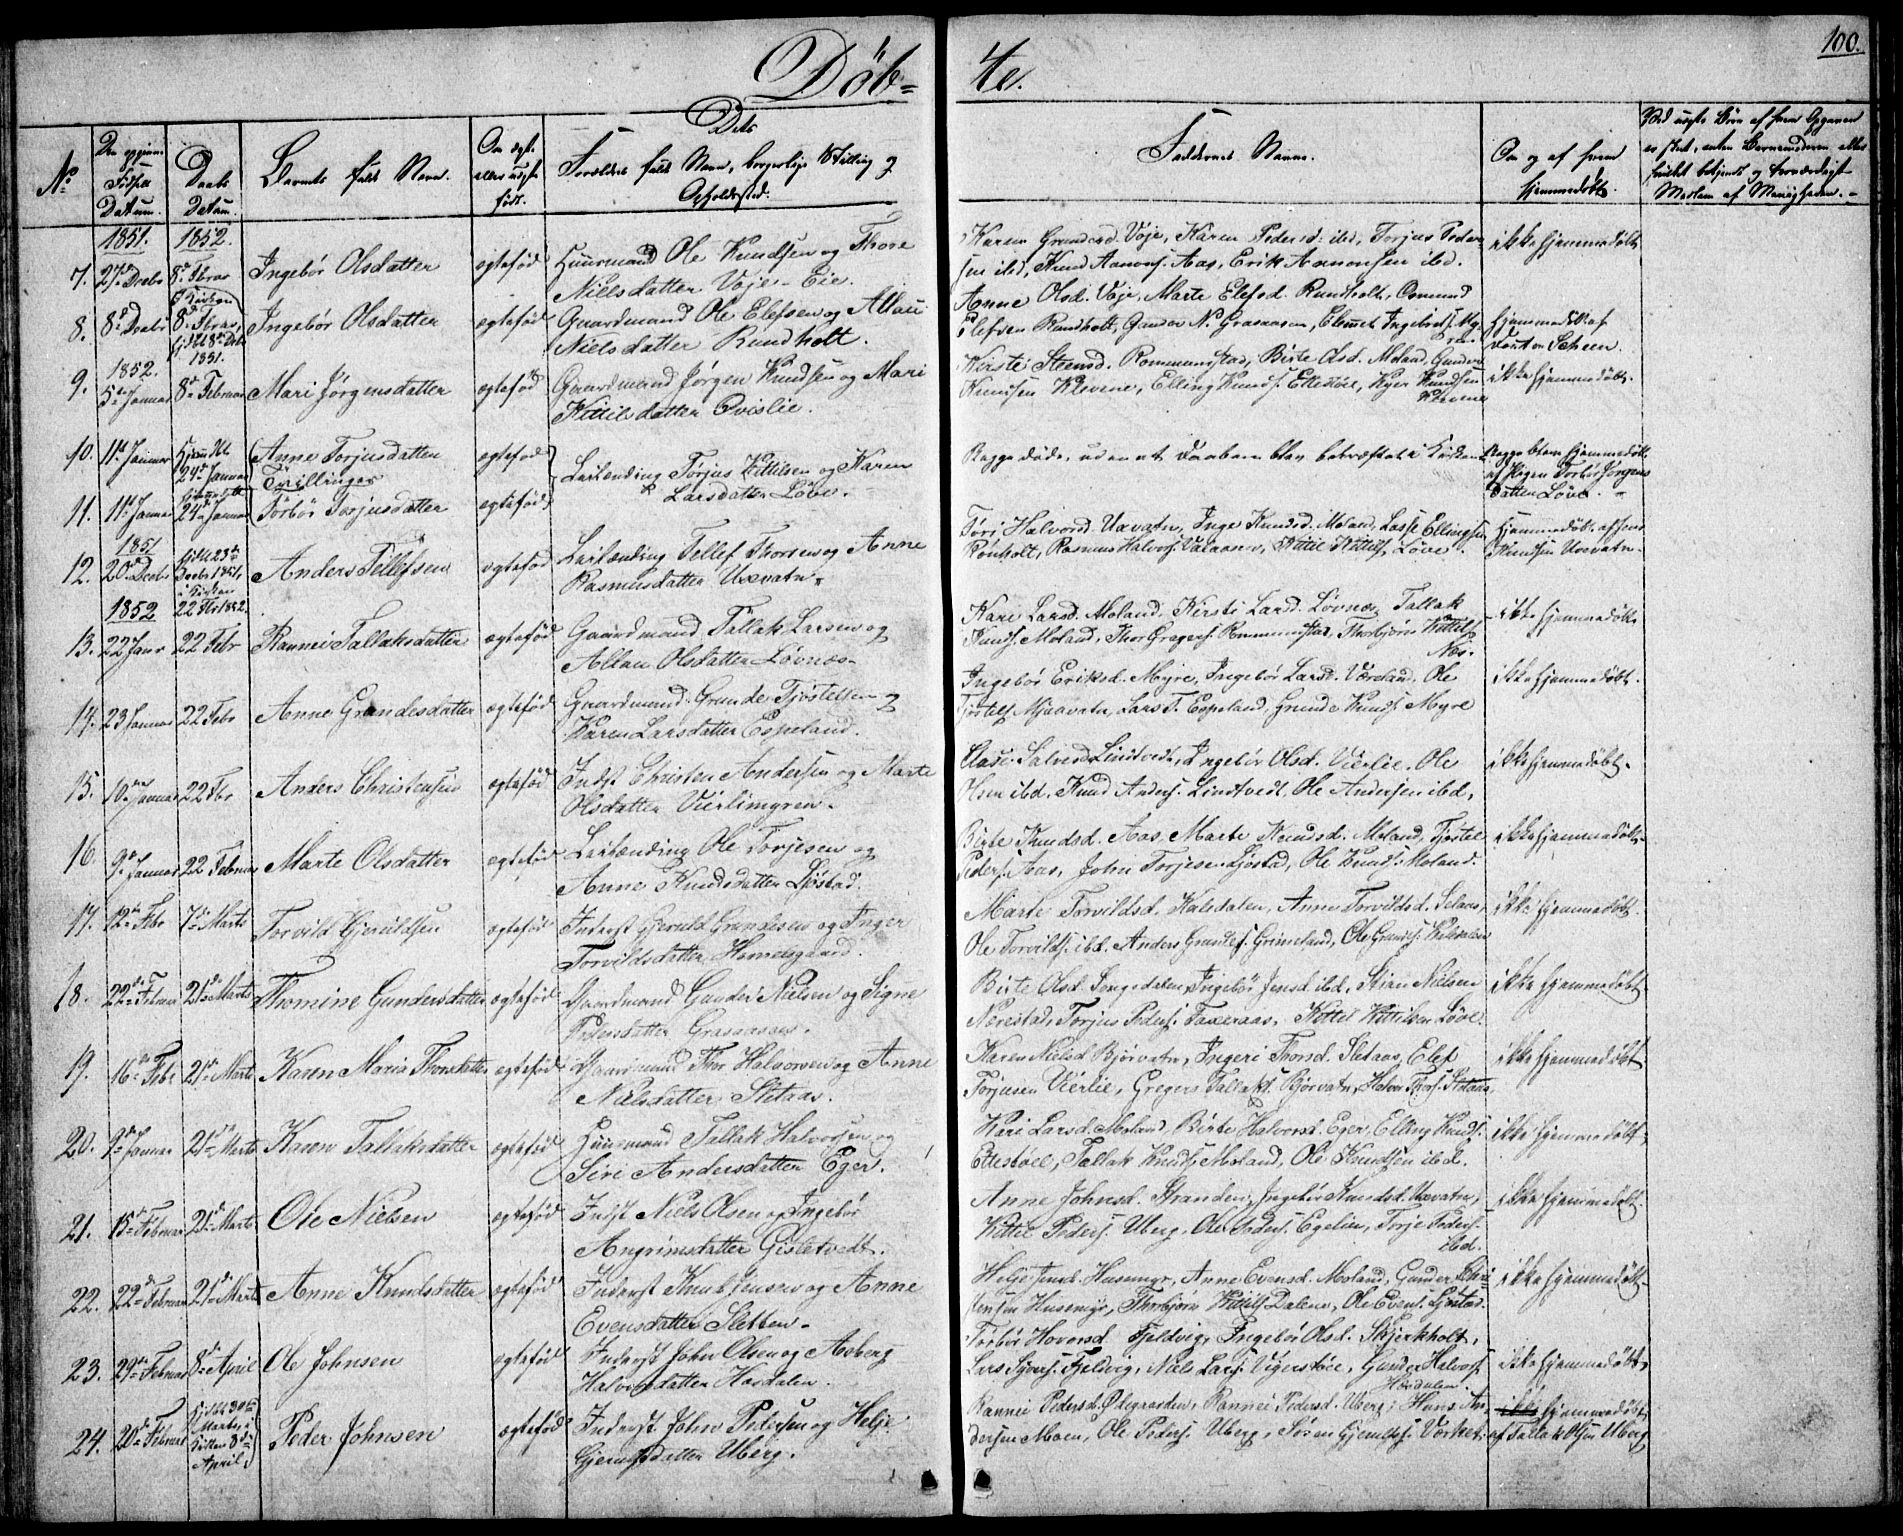 Døb-
te.
100.
No
Den opgivne
Fødsels
Datum.
Daabs
Datum.
Barnets fulde Navn.
Om ægte
eller uægte
født.
Dets
Forældres fulde Navn, borgerlige Stilling og
Opholdssted.
Faddernes Navne.
Om og af hvem
hjemmedøbt.
Ved uægte Børn af hvem Opgaven
er skeet, enten Barnemoderen eller
hvilket bekjendt og troværdigt
Medlem af Menigheden.
1851. 1852.
7. 27de Decbr 8de Febr Ingebør Olsdatter ægtefød Huusmand Ole Knudsen og Thore
Nielsdatter Voje-Eie.
Karen Grundesd. Voje, Karen Pedersd. ibd, Torjus Peder
sen ibd, Knud Aanons. Aas, Erik Aanonsen ibd.
ikke hjemmedøbt
8. 8de Decbr i Kirken 8de Febr, hjdbt 8de Decbr 1851. Ingebør Olsdatter ægtefød Gaardmand Ole Elefsen og Allau
Nielsdatter Rundholt.
Anne Olsd. Voje, Marte Elefsd. Rundholt, Osmund
Elefsen Rundholt, Gunder N. Graaasen, Clemet Ingebrets. My
ren
hjemmedøbt af
1852.
9. 5te Januar 8de Februar Mari Jørgensdatter ægtefød Gaardmand Jørgen Knudsen og Mari
Kittilsdatter Qvislie.
Kirsti Steensd. Rommunstad, Birte Olsd. Moland, Gunder
Knudsen Klevene, Elling Knuds. Ettestøel, Kyer Knudsen
Klevene
ikke hjemmedøbt.
10. 11te Januar hjemdbt 24de Januar Anne Torjusdatter ægtefød
Tvillinger
Leilænding Torjus Kittilsen og Karen
Larsdatter Løve.
Begge døde, uden at Daaben blev bekræftet i Kirken
Begge bleve hjemmedøbt
af Pigen Torbør Jørgens
datter Løve.
11. 11te Januar hjemmedbt 24de Januar Torbør Torjusdatter ægtefød
1851
12. 20de Decbr hjdbt 23de Decbr 1851, i Kirken 22 Febr 1852. Anders Tellefsen ægtefød Leilænding Tellef Thorsen og Anne
Rasmusdatter Uxvatn.
Tøri Halvorsd. Uxvatn, Inge Knudsd. Moland, Lasse Ellingsen
Rønholt, Rasmus Halvors. Valaasen, Kittil Kittils. Løve
hjemmedøbt af
Knudsen Uxvatn.
1852
13. 22 Janr 22 Febr Rannei Tallaksdatter ægtefød Gaardmand Tallak Larsen og
Allau Olsdatter Løvnæs.
Kari Larsd. Moland, Kirsti Larsd. Løvnæs, Tallak
Knuds. Moland, Thor Gregers. Rommunstad, Thorbjørn Kittils.
Næs.
ikke hjemmedøbt.
14. 23 Januar 22 Febr Anne Grundesdatter ægtefød Gaardmand Grunde Tjøstelsen og
Karen Larsdatter Espeland.
Ingebør Eriksd. Myre, Ingebør Larsd. Værland, Ole
Tjøstels. Mjaavatn, Lars T. Espeland, Grunde Knuds. Myre
ikke hjemmedøbt.
15. 10de Januar 22 Febr Anders Christensen ægtefød Indst Christen Andersen og Marte
Olsdatter Vierlimyren.
Aase Salvesd. Lindtvedt, Ingebør Olsd. Vierlie, Ole
Olsen ibd. Knud Anders. Lindtvedt, Ole Andersen ibd,
ikke hjemmedøbt.
16. 9de Januar 22 Februar Marte Olsdatter ægtefød Leilænding Ole Torjesen og
Anne Knudsdatter Ljøstad.
Birte Knudsd. Aas, Marte Knudsd. Moland, Tjøstel
Peders. Aas, John Torjesen Ljøstad, Ole Knuds. Moland.
ikke hjemmedøbt.
17. 12te Febr 7de Marts Torvild Gjeruldsen ægtefød Inderst Gjeruld Grundesen og Inger
Torvildsdatter Homdsgaard.
Marte Torvildsd. Kalsdalen, Anne Torvildsd. Selaas,
Ole Torvilds. ibd. Anders Grundes. Grimeland, Ole Grundes.
ikke hjemmedøbt.
18. 22de Februar 21de Marts Thomine Gundersdatter ægtefød Gaardmand Gunder Nielsen og Signe
Pedersdatter Graaasen.
Birte Olsd. Songedalen, Ingebør Jensd. ibd, Stian Nielsen
Nerestad, Torjus Peders. Faxeraas, Kittel Kittilsen Løve.
ikke hjemmedøbt
19. 16de Febr 21de Marts Karen Maria Thorsdatter ægtefød Gaardmand Thor Halvorsen og Anne
Nielsdatter Sletaas.
Karen Nielsd. Bjørvatn, Ingeri Thorsd. Sletaas, Elef
Torjusen Vierlie, Gregers Tallaks. Bjørvatn, Halvor Thors. Sletaas
ikke hjemmedøbt
20. 9de Januar 21de Marts Karen Tallaksdatter ægtefød Huusmand Tallak Halvorsen og
Siri Andersdatter Eger.
Kari Larsd. Moland, Birte Halvorsd. Eger, Elling Knuds.
Ettestøel, Tallak Knuds. Moland, Ole Knudsen ibd.
ikke hjemmedøbt
21. 15de Februar 21de Marts Ole Nielsen ægtefød Indst Niels Olsen og Ingebør
Angrimsdatter Gisletvedt.
Anne Johnsd. Stranden, Ingebør Knudsd. Uxvatn,
Kittel Peders. Uberg, Ole Anders. Egelien, Torje Peders.
ibd.
ikke hjemmedøbt.
22. 22de Februar 21de Marts Anne Knudsdatter ægtefød Inderst Knud Jensen og Anne
Evensdatter Sletten.
Helje Jensd. Husemyr, Anne Evensd. Moland, Gunder Chri
stensen Husemyr, Thorbjørn Kittils. Dalene, Ole Evens. Ljøstad.
ikke hjemmedøbt.
23. 29de Februar 8de April Ole Johnsen ægtefød Inderst John Olsen og Aasberg
Halvorsdatter Hasdalen.
Torbør Hovorsd. Fjeldvig, Ingebør Olsd. Skjerkholt,
Lars Sjvers. Fjeldvig, Niels Lars. Vigerstøl, Gunder Halvors.
Hasdalen.
ikke hjemmedøbt.
24. 20de Februar hjdbt 30te Marts, i Kirken 8de April. Peder Johnsen ægtefød Inderst John Pedersen og Helje
Gjerulfsdatter Uberg.
Rannei Pedersd. Ødegaarden, Rannei Pedersd. Uberg, Hans An
dersen Moen, Ole Peders. Uberg, Søren Gjerulfs. Værket.
ikke hjemmedøbt
af Tallak Olsen Uberg